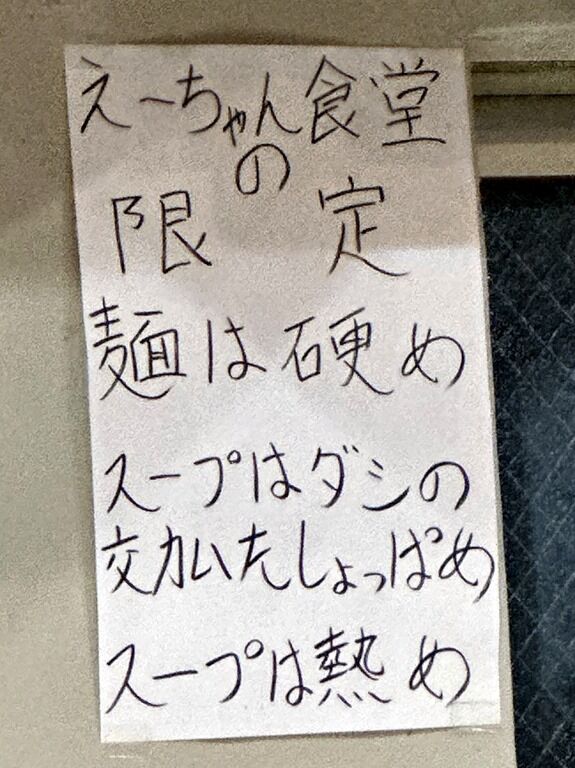 えーちゃん食堂
の
限定
麺は硬め
スープはダシの
効いたしょっぱめ
スープは熱め